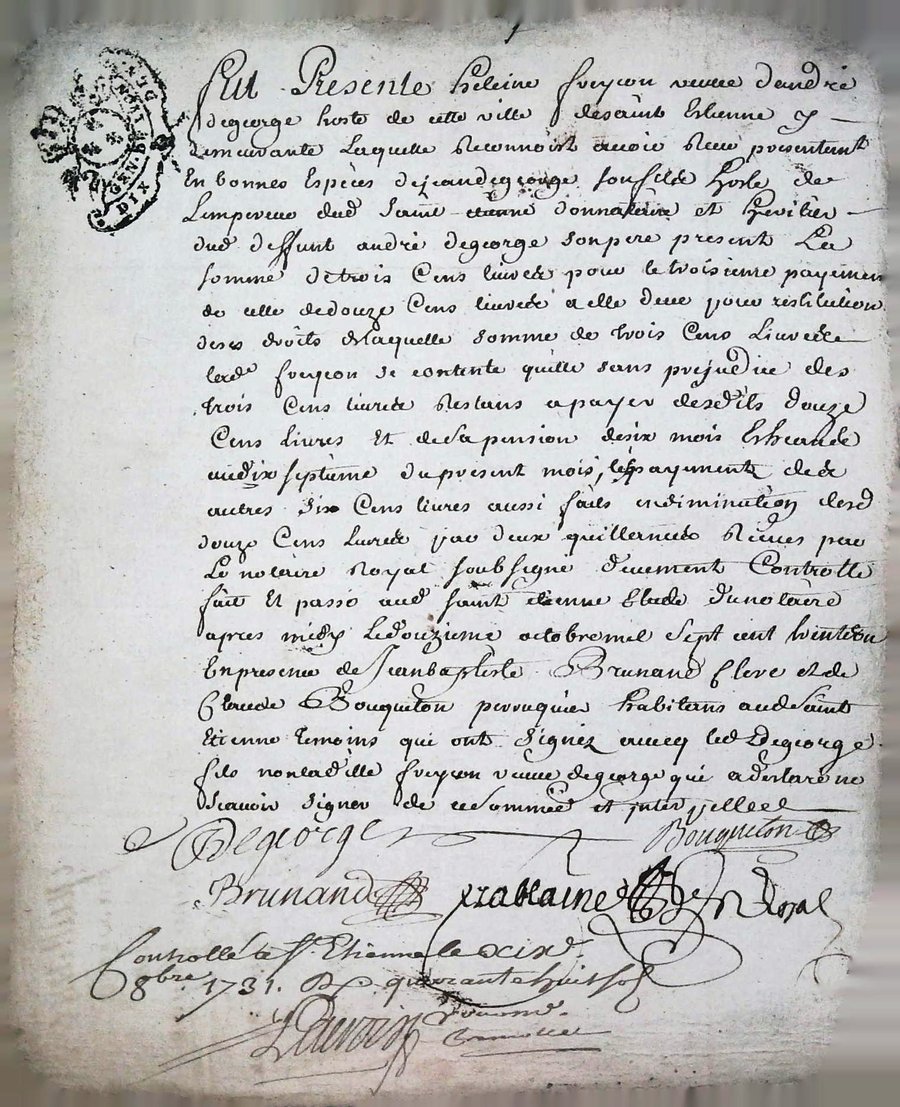 GEN DE LION DIX
Fut Presente heleine freyçon veuve dandré
degeorge hoste de cette ville desaint Etienne y
demeurante Laquelle Reconnoist avoir Receu presentemt
En bonnes Espèces dejeandegeorge sonfils hoste de
Lempereur dud Saint etienne donnataire et heritier
dud deffunt andré degeorge sonpere present La
somme detrois Cens livres pour le troisieme payement
de celle dedouze Cens livres a elle deue pour restitution
deses droits delaquelle somme de trois Cens Livres
lad freyçon se contente quitte sans prejudice des
trois Cens livres Restans apayer desdits douze
Cens Livres Et delapension desix mois Escheande
audix septieme dupresent mois, les payements des
autres Six Cens livres aussi faits endiminution desd
douze Cens Livres par deux quittances Reçues par
Le notaire Royal soubsigné deuement Controllé
fait Et passé aud saint etienne Etude dunotaire
apres midy Ledouzieme octobremil Sept cent trenteun
Enpresence de Jeanbaptiste Brunand Clerc et de
Claude Bouqueton perruquier habitans audSaint
Etienne temoins qui ont Signez avecq led Degeorge
fils nonladitte freyçon veuve degeorge qui adeclaré ne
Scavoir Signer de ce Sommée et interpellee
Degeorge Bouqueton
Brunand Royal
Controllé a St Etienne le xixe
8bre 1731. R quarante huit sols